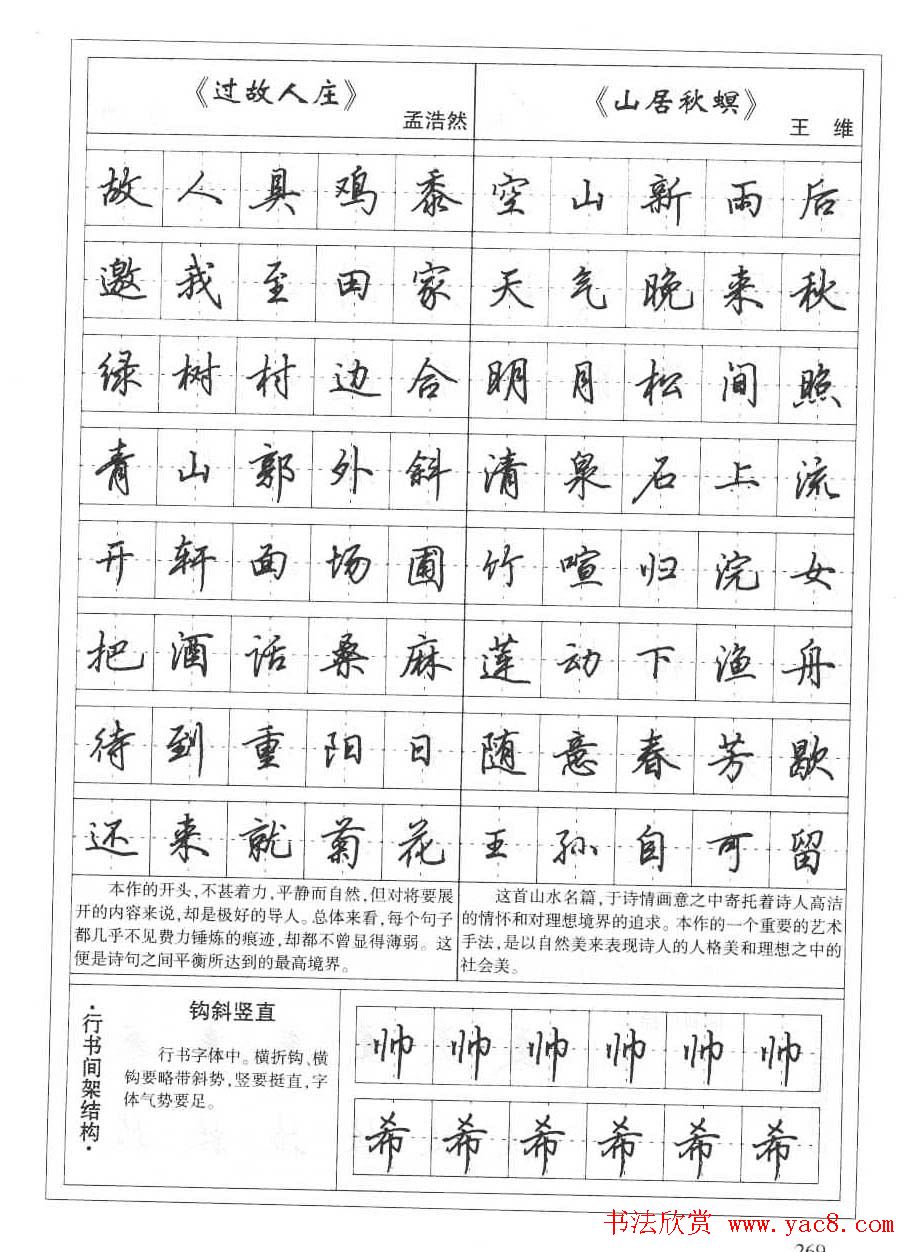 《过故人庄》
孟浩然
故人具鸡黍
邀我至田家
绿树村边合
青山郭外斜
开轩面场圃
把酒话桑麻
待到重阳日
还来就菊花
本作的开头,不甚着力,平静而自然,但对将要展
开的内容来说,却是极好的导人。总体来看,每个句子
都几乎不见费力锤炼的痕迹,却都不曾显得薄弱。这
便是诗句之间平衡所达到的最高境界。
《山居秋螟》
王 维
空山新雨后
天气晚来秋
明月松间照
清泉石上流
竹喧归浣女
莲动下渔舟
随意春芳歇
王孙自可留
这首山水名篇,于诗情画意之中寄托着诗人高洁
的情怀和对理想境界的追求。本作的一个重要的艺术
手法,是以自然美来表现诗人的人格美和理想之中的
社会美。
·行书间架结构·
钩斜竖直
行书字体中。横折钩、横
钩要略带斜势,竖要挺直,字
体气势要足。
帅帅帅帅帅帅
希希希希希希
书法欣赏 www.yac8.com
269